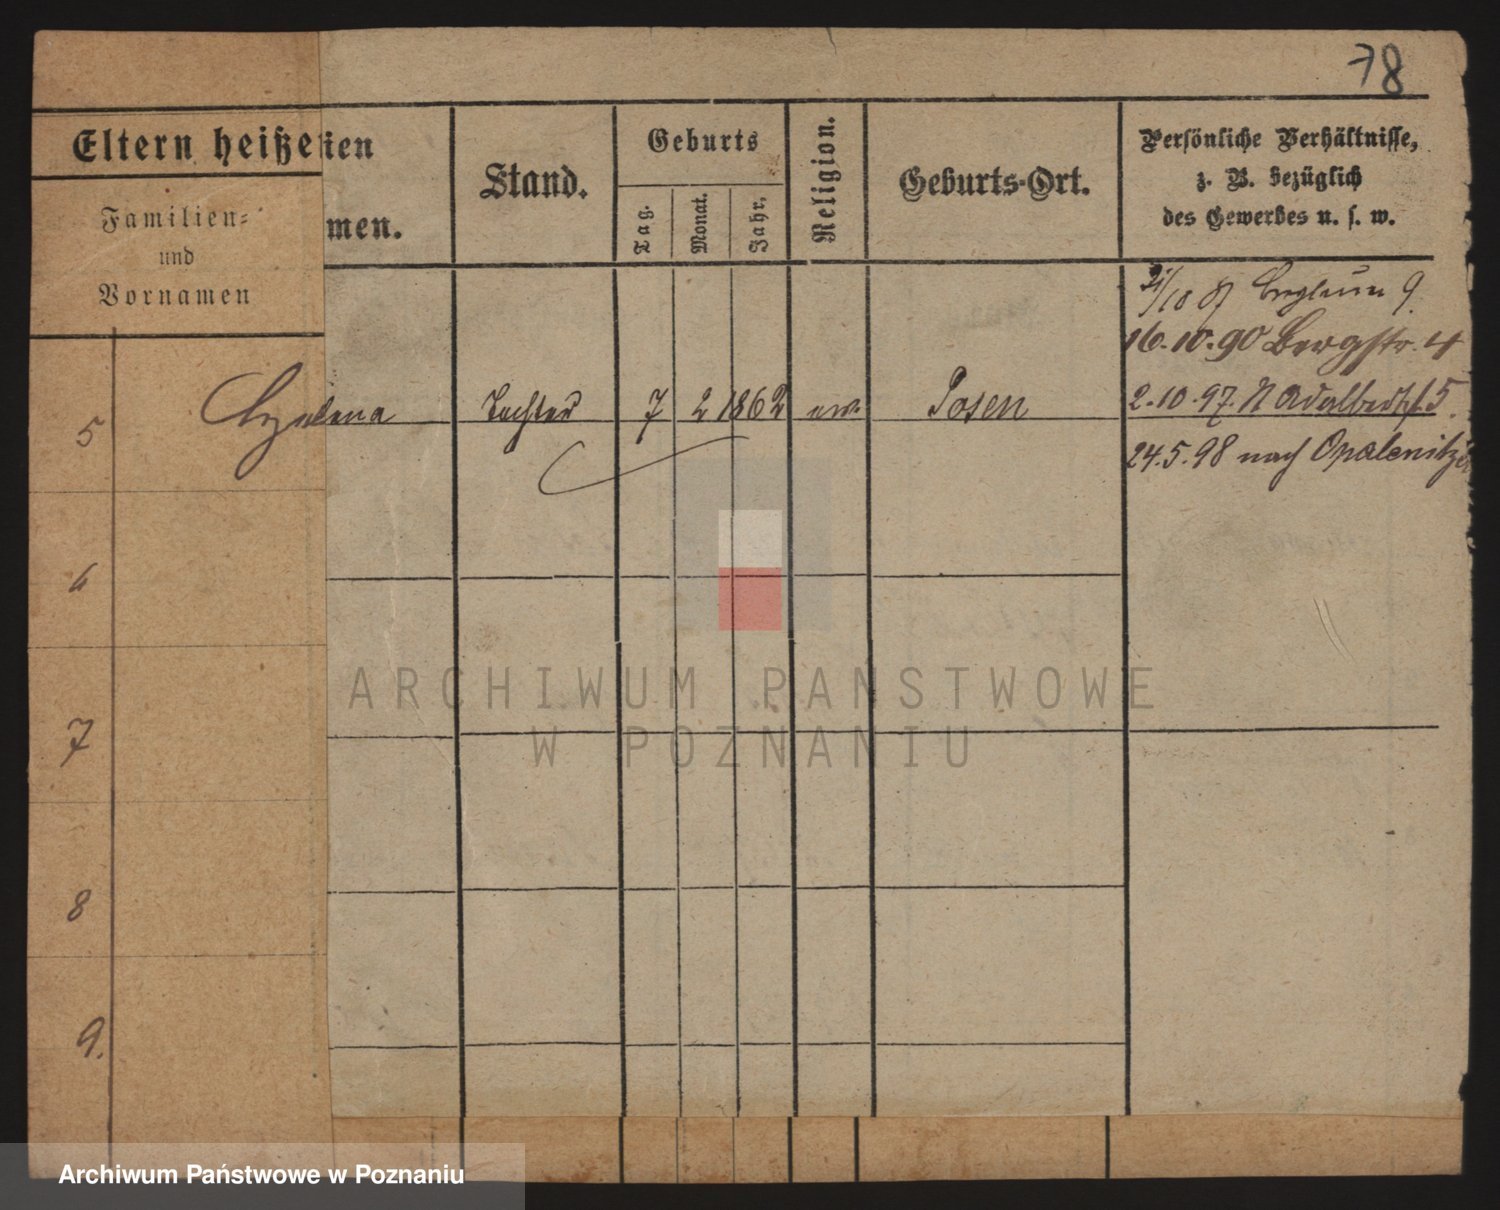 78
Eltern heißen
Familien-
und
Vornamen
ien
men.
Stand.
Geburts
Tag.
Monat.
Jahr.
Religion.
Geburts-Ort.
Persönliche Verhältnisse,
z. B. bezüglich
des Gewerbes u. s. w.
9
16.10.90 Bergstr. 4
5 Tochter 7 2 1862 Posen
2.10.97. 5.
24.5.98 nach Opalenitza
6
7
8
9.
ARCHIWUM PAŃSTWOWE
W POZNANIU
Archiwum Państwowe w Poznaniu